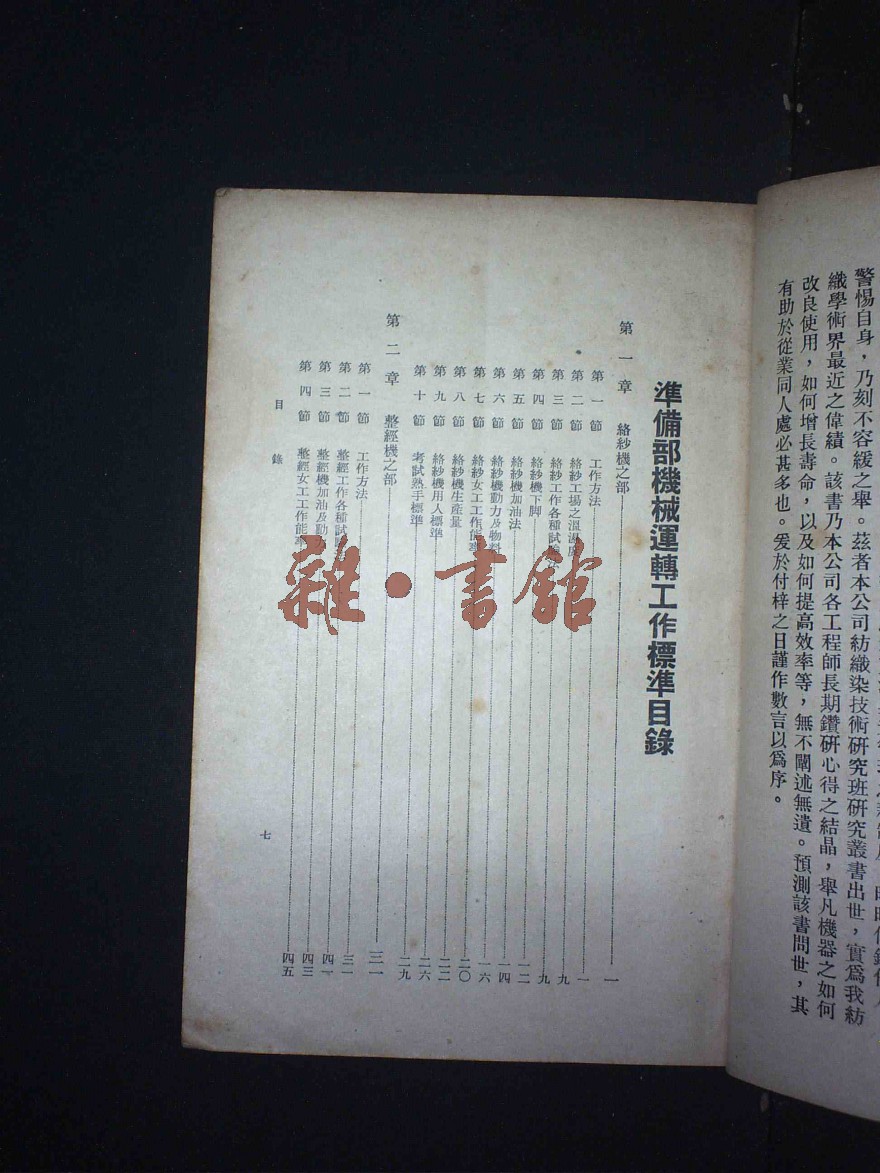 警惕自身，乃刻不容緩之舉。茲者本公司紡織染技術研究班研究叢書出世，實爲我紡
織學術界最近之偉績。該書乃本公司各工程師長期鑽研心得之結晶，舉凡機器之如何
改良使用，如何增長壽命，以及如何提高效率等，無不闡述無遺。預測該書問世，其
有助於從業同人處必甚多也。爰於付梓之日謹作數言以爲序。
準備部機械運轉工作標準目錄
第一章 絡紗機之部 一
第一節 工作方法 一
第二節 絡紗工場之溫濕度 九
第三節 絡紗工作各種試驗法 九
第四節 絡紗機下脚 一二
第五節 絡紗機加油法 一四
第六節 絡紗機動力及物料 一六
第七節 絡紗女工工作能率 二〇
第八節 絡紗機生產量 二二
第九節 絡紗機用人標準 二六
第十節 考試熟手標準 二九
第二章 整經機之部 三一
第一節 工作方法 三一
第二節 整經工作各種試驗 四一
第三節 整經機加油及動力 四三
第四節 整經女工工作能率 四五
目錄
七
雜·書館